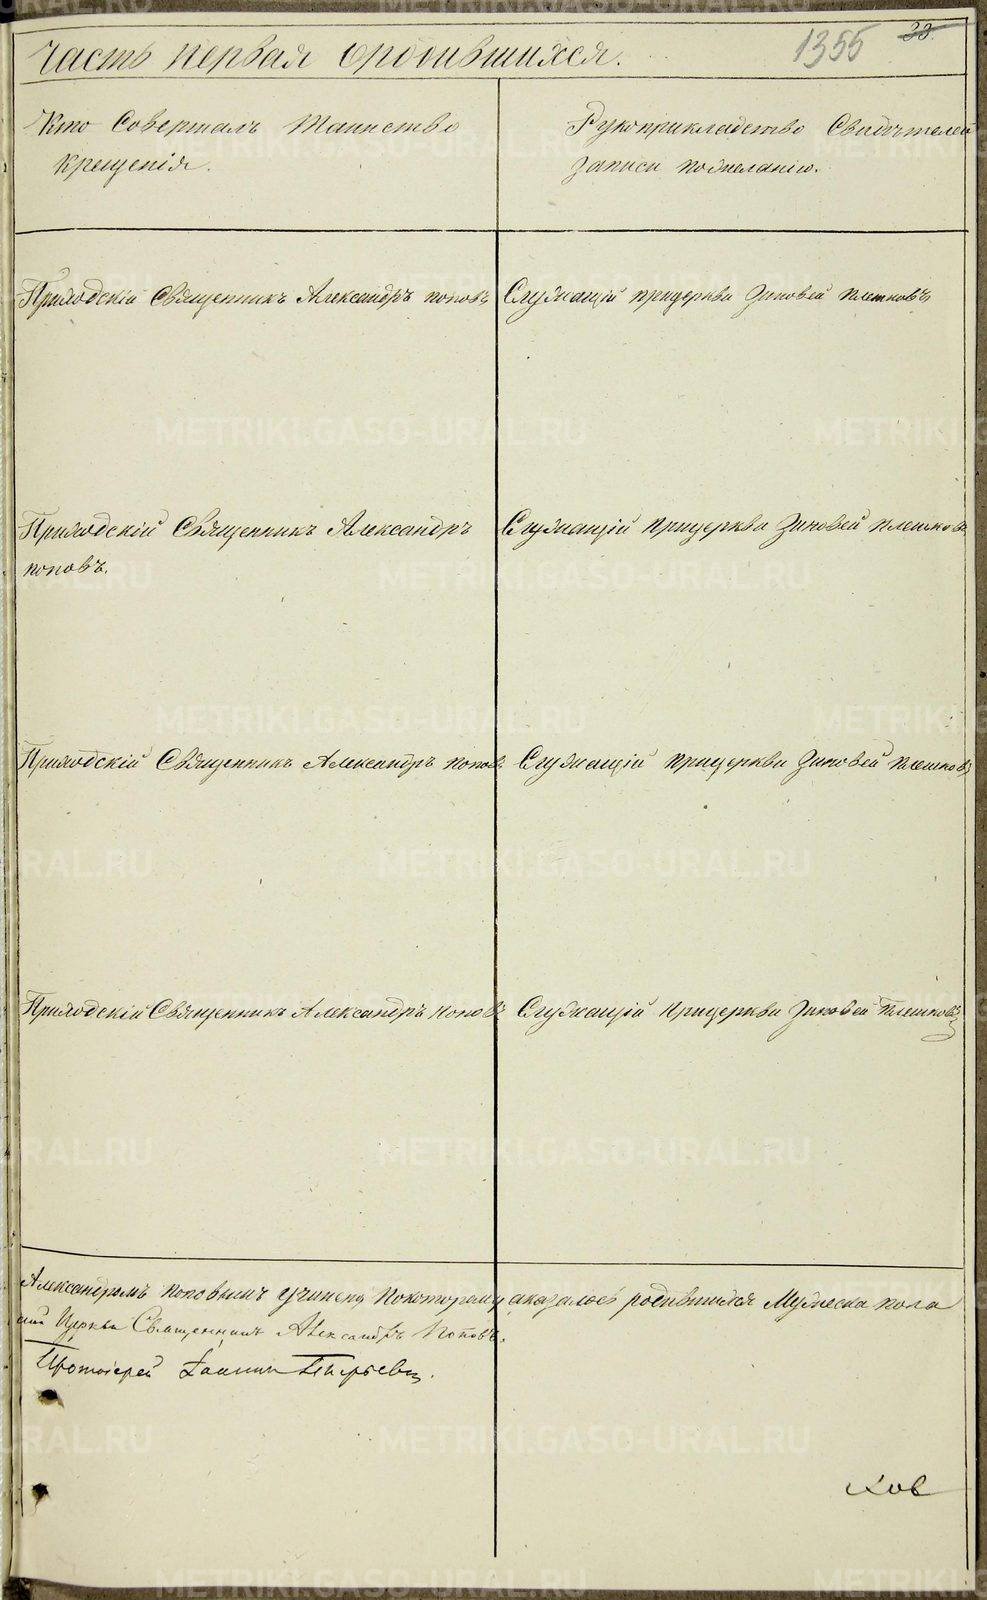 Часть первая о родившихся.
1355
33
Кто Совершалъ Таинство
Крещенія.
Рукоприкладство Свидѣтелей
записи пожеланію.
Приходскій Священникъ Александръ поповъ
Служащій прицеркви Зиновей плешковъ
Приходскій Священникъ Александръ
поповъ.
Служащій прицеркви Зиновей плешковъ
Приходскій Священникъ Александръ поповъ
Служащій прицеркви Зиновей плешковъ
Приходскій Священникъ Александръ поповъ
Служащій прицеркви Зиновей Плешковъ
Александромъ Поповымъ учинена покоторому оказалось родившихся Мужеска пола
Церкви Священникъ Александръ Поповъ.
Протоіерей Іоаннъ
ков
METRIKI.GASO-URAL.RU